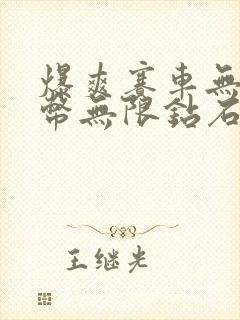 爆爽賽車無
幣無限鉆石
王继光